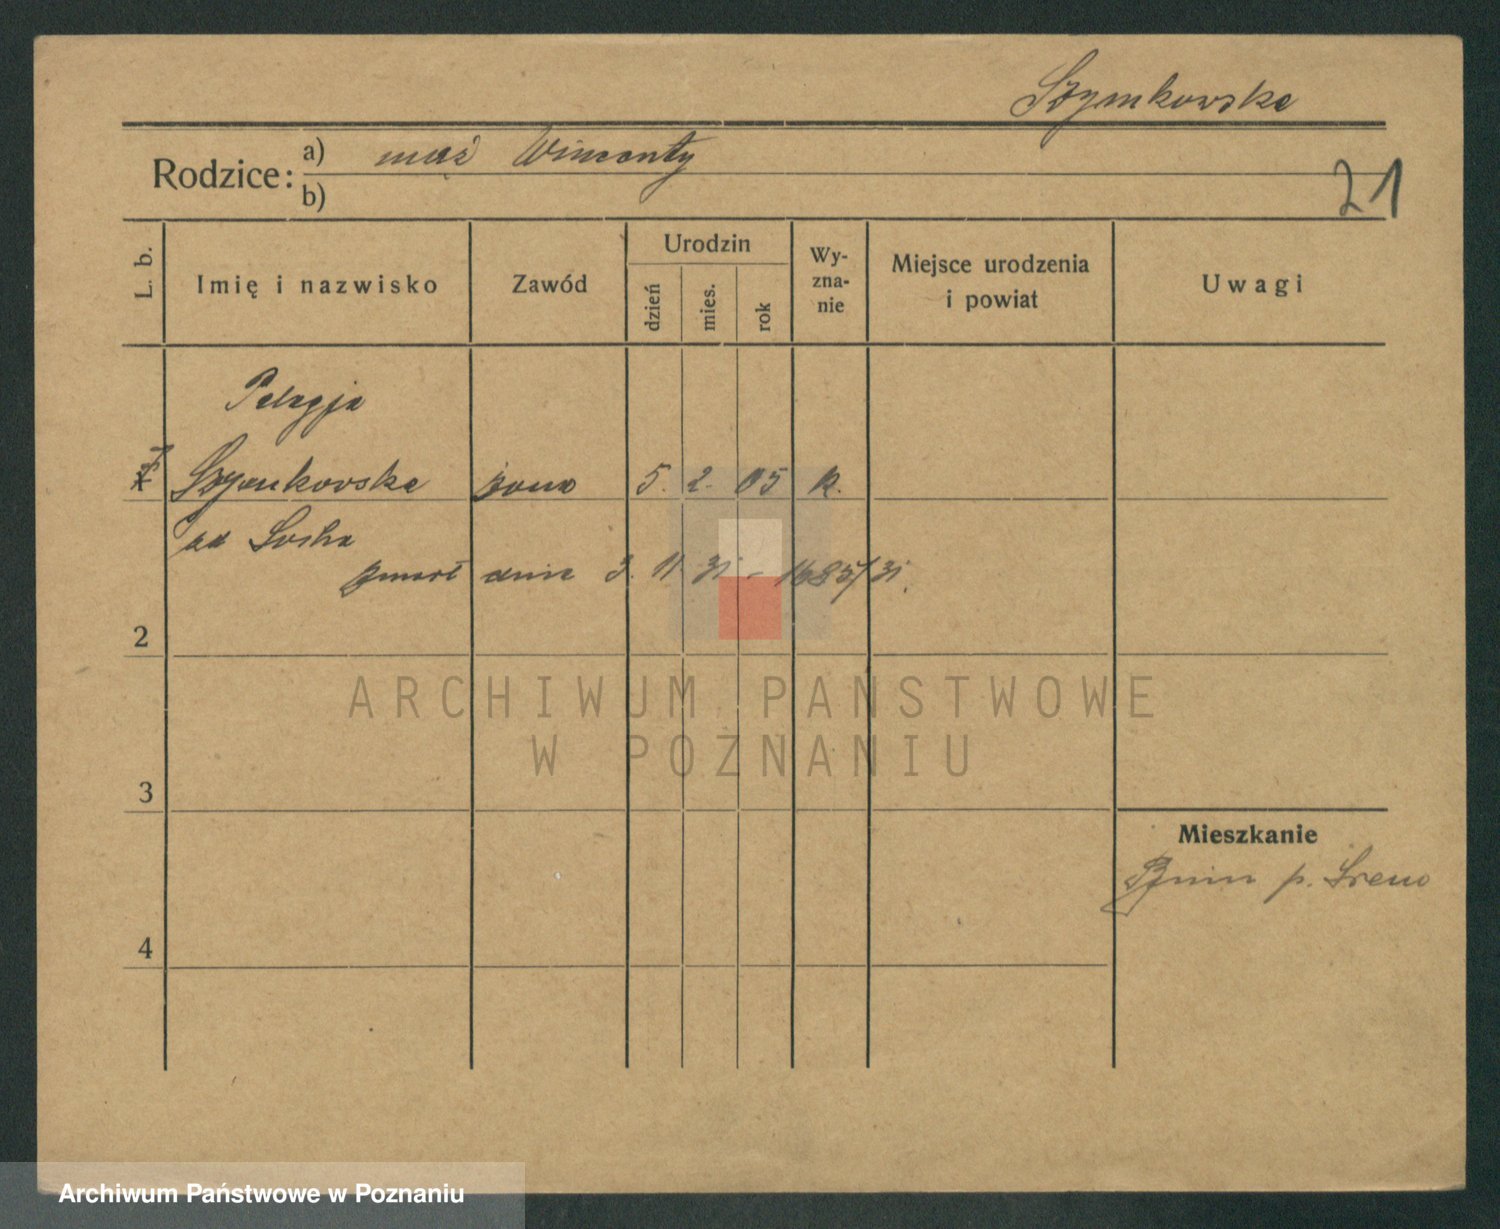 Szymkowska
Rodzice: a) mąż Wincenty
b)
21
L. b. Imię i nazwisko Zawód Urodzin dzień mies. rok Wy-zna-nie Miejsce urodzenia i powiat Uwagi
Pelagja
Szymkowska żona 5. 2. 05 k.
zd Socha
zmarł dnia 3. 11 31 - 1685/31.
2
ARCHIWUM PAŃSTWOWE
W POZNANIU
3
Mieszkanie
Bnin p. Śrem
4
Archiwum Państwowe w Poznaniu